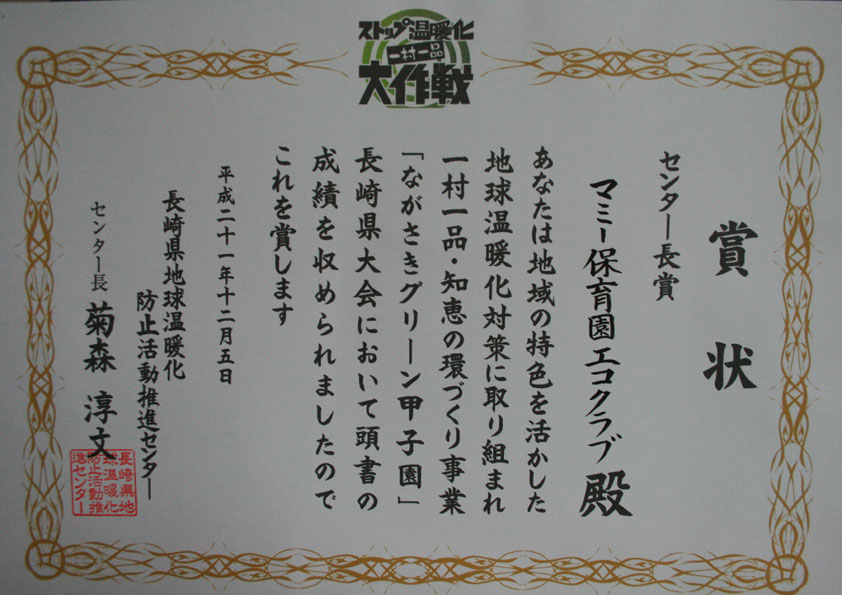 ストップ温暖化
一村一品
大作戦
賞状
センター長賞
マミー保育園エコクラブ殿
あなたは地域の特色を活かした
地球温暖化対策に取り組まれ
一村一品・知恵の環づくり事業
「ながさきグリーン甲子園」
長崎県大会において頭書の
成績を収められましたので
これを賞します
平成二十一年十二月五日
長崎県地球温暖化
防止活動推進センター
センター長 菊森淳文
長崎県地
球温暖化
防止活動推
進センター